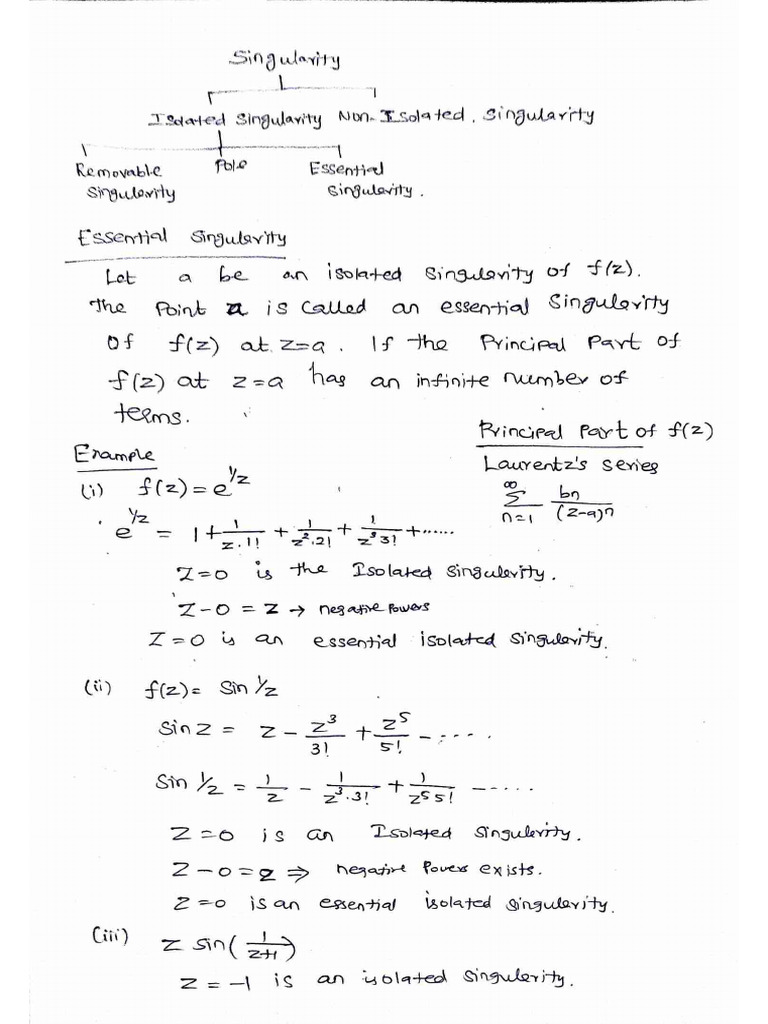 Singularity
Isolated Singularity Non-Isolated. Singularity
Removable Singularity
Pole
Essential Singularity.
Essential Singularity
Let a be an isolated Singularity of f(z).
The Point a is called an essential Singularity
Of f(z) at z=a. If the Principal Part of
f(z) at z=a has an infinite number of
terms.
Principal Part of f(z)
Laurentz's series
∞ Σ n=1 bn/(z-a)^n
Example
(i) f(z) = e^1/z
e^1/z = 1 + 1/z.1! + 1/z².2! + 1/z³3! + ......
Z=0 is the Isolated Singularity.
Z-0 = Z → negative Powers
Z=0 is an essential isolated Singularity.
(ii) f(z) = Sin 1/z
Sin Z = Z - Z³/3! + Z⁵/5! - .....
Sin 1/z = 1/z - 1/z³.3! + 1/z⁵5! - .....
Z=0 is an Isolated Singularity.
Z-0=Z ⇒ negative Powers exists.
Z=0 is an essential isolated Singularity.
(iii) Z Sin(1/z+1)
Z=-1 is an isolated Singularity.